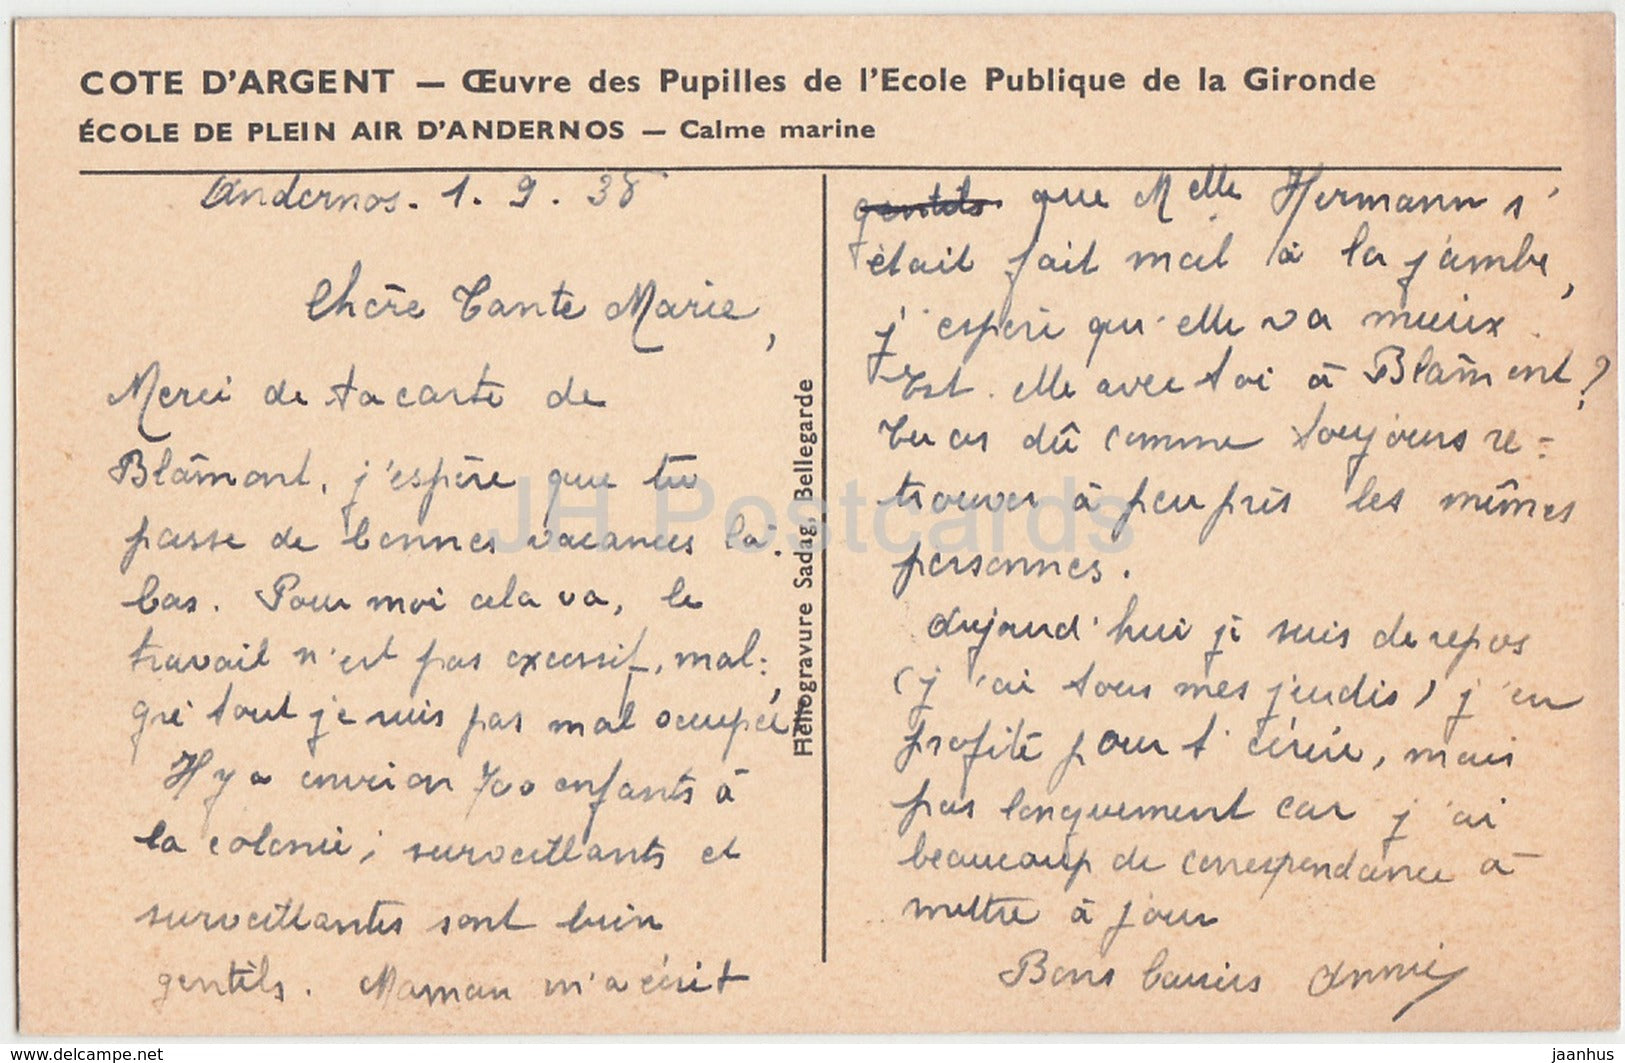 COTE D'ARGENT — Œuvre des Pupilles de l'Ecole Publique de la Gironde
ÉCOLE DE PLEIN AIR D'ANDERNOS — Calme marine
Andernos. 1. 9. 38
Chère Tante Marie,
Merci de ta carte de
Blâmont, j'espère que tu
passe de bonnes vacances là.
bas. Pour moi cela va, le
travail n'est pas excessif, mal-
gré tout je suis pas mal occupée
Il y a environ 700 enfants à
la colonie; surveillants et
surveillantes sont bien
gentils. Maman m'a écrit
gentils que Melle Hermann s'
était fait mal à la jambe,
j'espère qu'elle va mieux.
Est-elle avec toi à Blâmont?
Tu as dû comme toujours re-
trouver à peu près les mêmes
personnes.
Aujourd'hui je suis de repos
(j'ai tous mes jeudis) j'en
profite pour t'écrire, mais
pas longuement car j'ai
beaucoup de correspondance à
mettre à jour
Bons baisers Annie
Héliogravure Sadag, Bellegarde
JH Postcards
www.delcampe.net
jaanhus